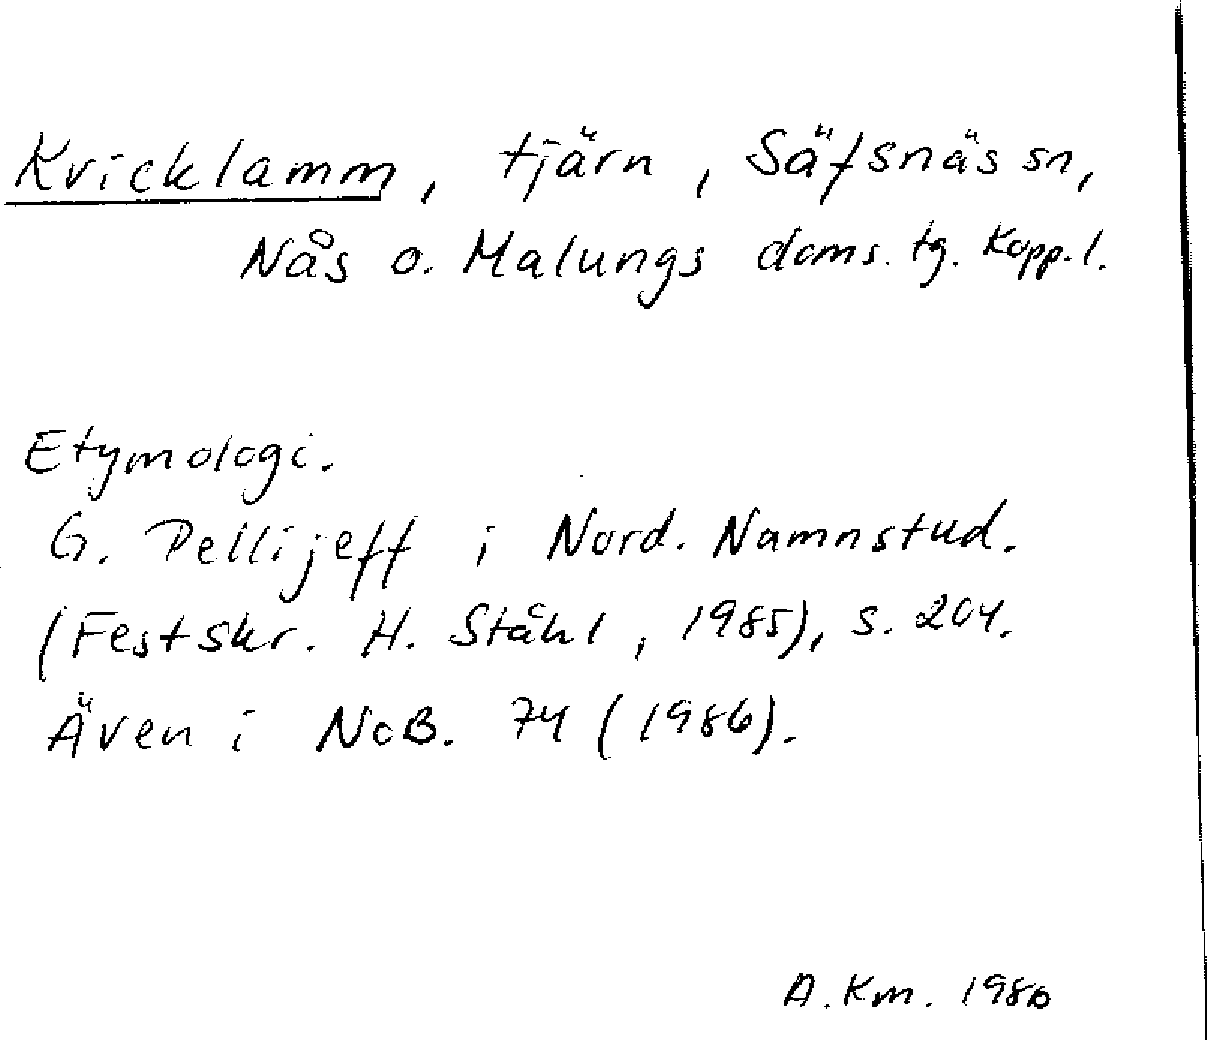 Kvicklamm, tjärn, Säfsnäs sn,
Nås o. Malungs doms. tg. Kopp. l.
Etymologi.
G. Pellijeff i Nord. Namnstud.
(Festskr. H. Ståhl, 1985), s. 204.
Även i NoB. 74 (1986).
A. Km. 1986